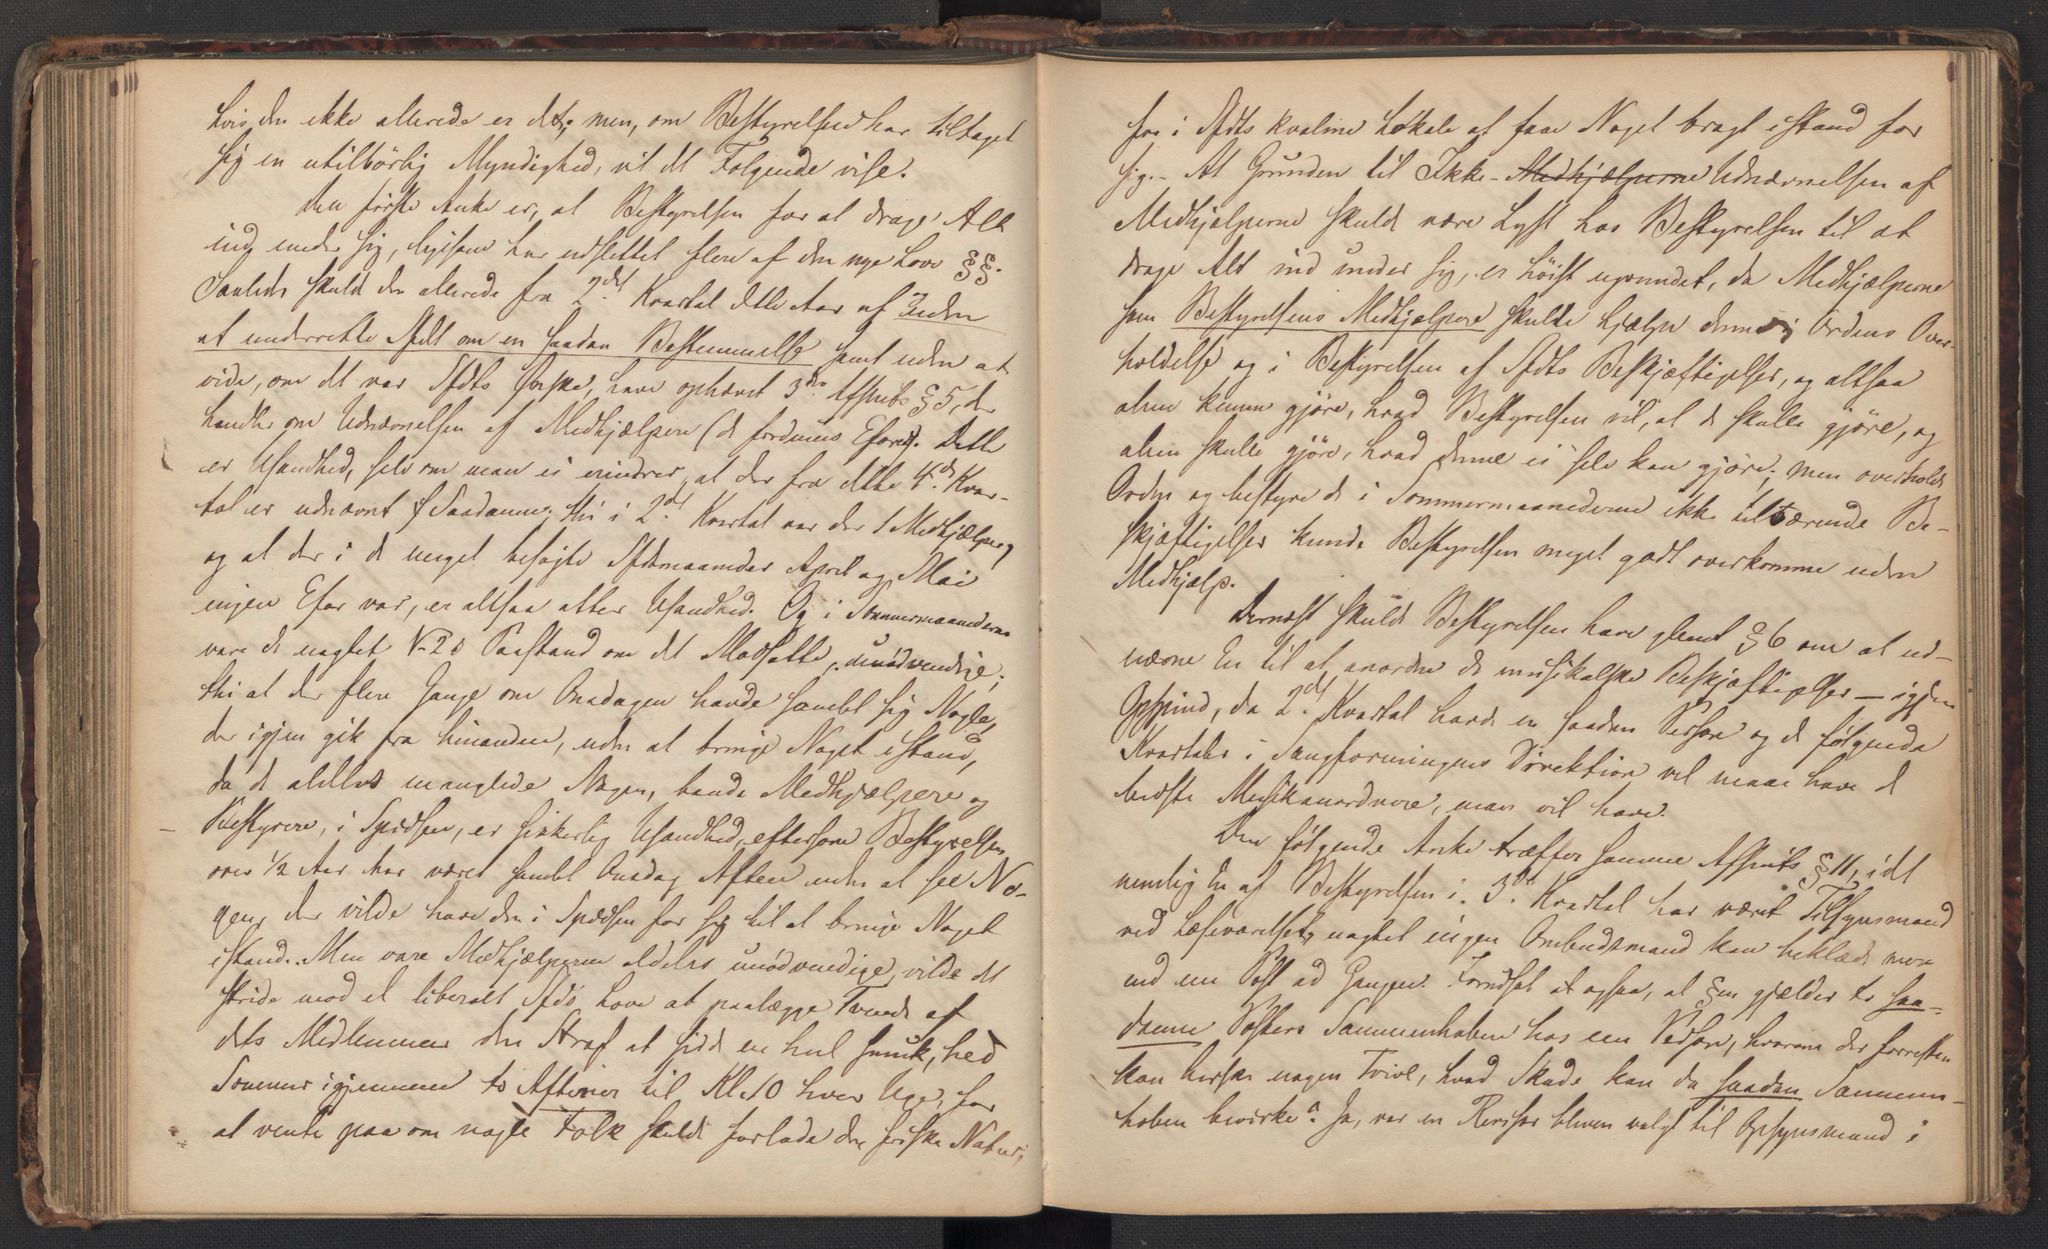 hvis den ikke allerede er det; men, om Bestyrelsen har tiltaget
sig en utilbörlig Myndighed, vil det Folgende vise.
Den förste Anke er, at Bestyrelsen for at drage Alt
ind under sig, ligesom har udslettet flere af den nye Lovs §§.
Saaledes skuld den allerede fra 2det Kvartal dette Aar af uden
at underrette Sfdt om en saadan Bestemmelse samt uden at
vide, om det var Sfdts Önske, have ophævet 3die Afsnits § 5, der
handler om Udnævnelsen af Medhjælpere (de fordums Eforer). Dette
er Usandhed, selv om man ei erindrer, at der fra dette 4de Kvar-
tal er udnævnt Saadanne; thi i 2det Kvartal var der 1 Medhjælper,
og at der i de meget besøgte Sfdsmaaneder April og Mai
ingen Efor var, er altsaa atter Usandhed. Og i Sommermaanederne
vare de uagtet N-20 Paastand om det Modsatte, unödvendige;
thi at der flere Gange om Onsdagen havde samlet sig Nogle,
der igjen gik fra hinanden, uden at bringe Noget istand,
da de aldeles manglede Nogen, baade Medhjælpere og
Bestyrere, i Spidsen, er sikkerlig Usandhed, eftersom Bestyrelsen
over 1/2 Aar har været samlet Onsdag Aften uden at see No-
gen, der vilde have den i Spidsen for sig til at bringe Noget
istand. Men vare Medhjælperne aldeles unödvendige, vilde det
stride mod et liberalt Sfds Love at paalægge Tvende af
dets Medlemmer den Straf at sidde en hel smuk, hed
Sommer igjennem to Aftener til Kl. 10 hver Uge, for
at vente paa om nogle Folk skulde forlade den friske Natur,
for i Sfdts kvalme Lokale at faae Noget bragt istand for
sig. - At Grunden til Ikke-Medhjælperne Udnævnelsen af
Medhjælperne skulde være Lyst hos Bestyrelsen til at
drage Alt ind under sig, er höist ugrundet, da Medhjælperne
som Bestyrelsens Medhjælpere skulde hjælpe denne i Ordens Over-
holdelse og i Bestyrelsen af Sfdts Beskjæftigelser, og altsaa
alene kunne gjöre, hvad Bestyrelsen vil, at de skulle gjöre, og
alene skulle gjöre, hvad denne ei selv kan gjöre; men overholde
Orden og bestyre de i Sommermaanederne ikke tiltærende Be-
skjæftigelser kunde Bestyrelsen meget godt overkomme uden
Medhjælp.
Dernæst skulde Bestyrelsen have glemt § 6 om at ud-
nævne En til at anordne de musikalske Beskjæftigelser - igjen
Opspind, da 2det Kvartal havde en saadan Person og de følgende
Kvartaler i Sangforeningens Direktion vel maae have de
bedste Musikanordnere, man vil have.
Den følgende Anke træffer samme Afsnits § 11, idet
nemlig En af Bestyrelsen i 3die Kvartal har været Tilsynsmand
ved Læseværelset, uagtet ingen Ombudsmand kan beklæde mere
end een Post ad Gangen. Forudsat at ogsaa, at §en gjælder to saa-
danne Posters Sammenhaben hos een Person, hvorom der forresten
kan herske nogen Tvivl, hvad Skade kan da saadan Sammen-
haben bevirke? Ja, var en Revisor bleven valgt til Opsynsmand i